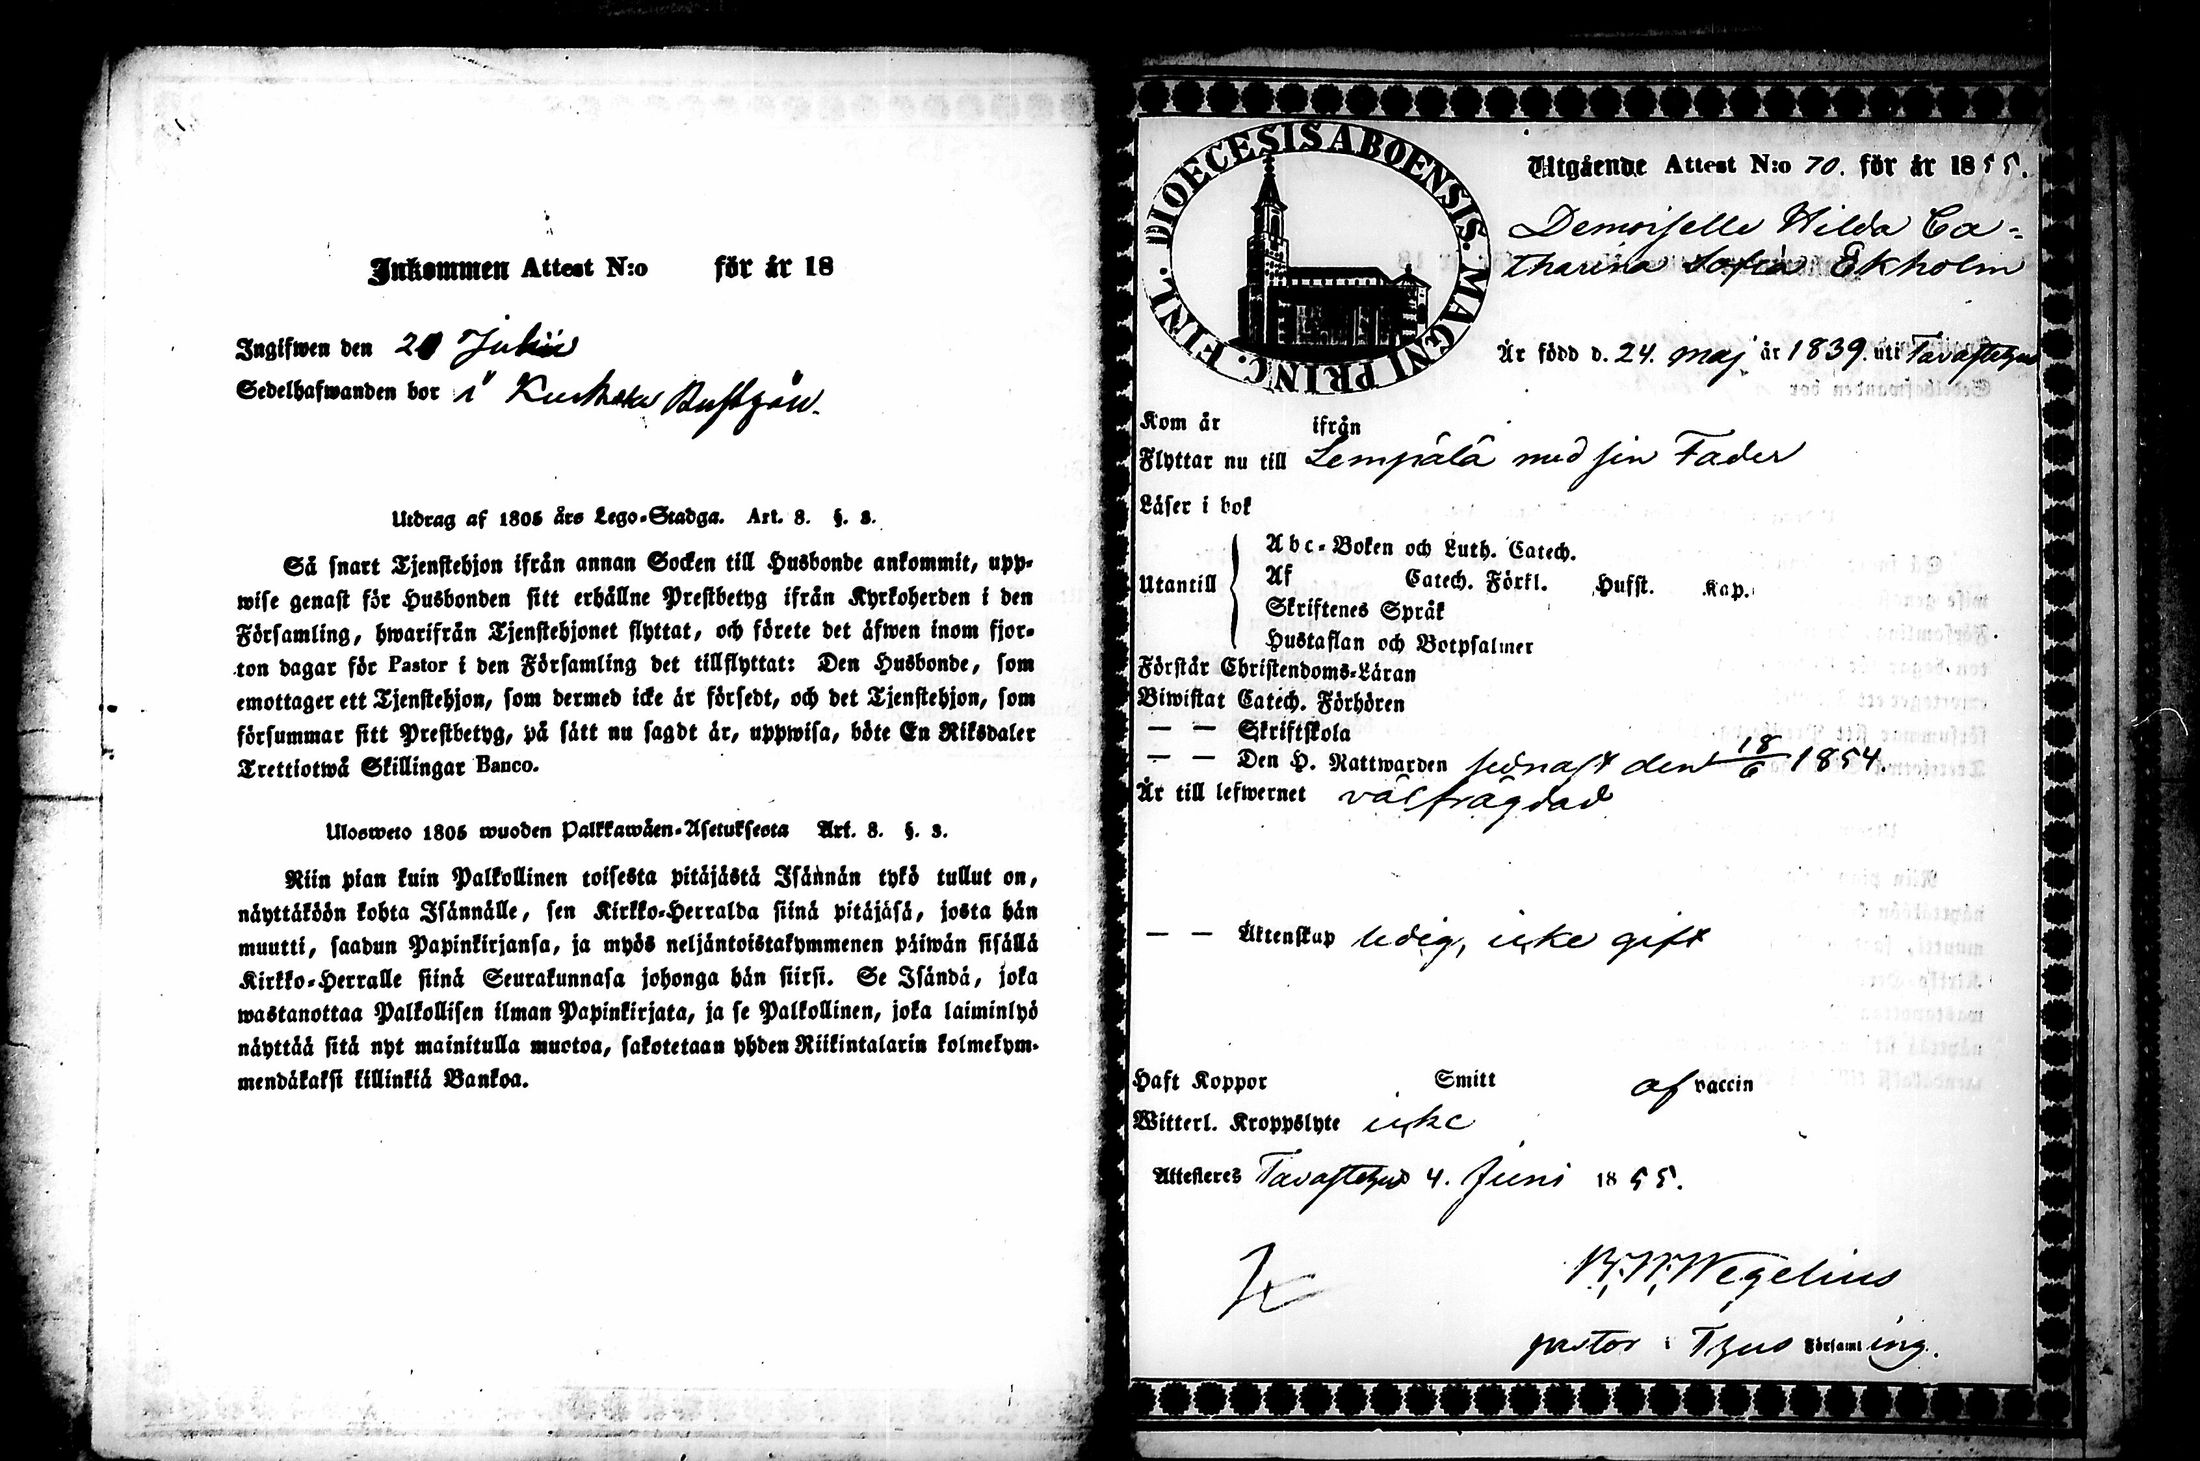 Inkommen Attest N:o för år 18
Ingifwen den 20 Julii
Sedelhafwanden bor i
Utdrag af 1805 års Lego-Stadga. Art. 8. §. 3.
Så snart Tjenstehjon ifrån annan Socken till Husbonde ankommit, upp-
wise genast för Husbonden sitt erhållne Prestbetyg ifrån Kyrkoherden i den
Församling, hwarifrån Tjenstehjonet flyttat, och förete det äfwen inom fjor-
ton dagar för Pastor i den Församling det tillflyttat: Den Husbonde, som
emottager ett Tjenstehjon, som dermed icke är försedt, och det Tjenstehjon, som
försummar sitt Prestbetyg, på sätt nu sagdt är, uppwisa, böte En Riksdaler
Trettiotwå Skillingar Banco.
Ulosweto 1805 wuoden Palkkawäen-Asetuksesta Art. 8. §. 3.
Niin pian kuin Palkollinen toisesta pitäjästä Isännän tykö tullut on,
näyttäköön kohta Isännälle, sen Kirkko-Herralda siinä pitäjäsä, josta hän
muutti, saadun Papinkirjansa, ja myös neljäntoistakymmenen päiwän sisällä
Kirkko-Herralle siinä Seurakunnasa johonga hän siirsi. Se Isändä, joka
wastanottaa Palkollisen ilman Papinkirjata, ja se Palkollinen, joka laiminlyö
näyttää sitä nyt mainitulla muotoa, sakotetaan yhden Riikintalarin kolmekym-
mendäkaksi killinkiä Bankoa.
DIOECESIS ABOENSIS. MAGNI PRINC. FINL.
Utgående Attest N:o 70. för år 1855.
Demoiselle Hilda Ca-
tharina Sofia Ekholm
Är född d. 24. maj år 1839. uti Tavastehus
Kom år ifrån
Flyttar nu till Lempälä med sin Fader
Läser i bok
Utantill
Abc-Boken och Luth. Catech.
Af Catech. Förkl. Hufst. Kap.
Skriftenes Språk
Hustaflan och Botpsalmer
Förstår Christendoms-Läran
Biwistat Catech. Förhören
— — Skriftskola
— — Den H. Nattwarden sednast den 18/6 1854.
Är till lefwernet välfrägdad
— — Äktenskap ledig, icke gift
Haft Koppor Smitt af vaccin
Witterl. Kroppslyte icke
Attesteres Tavastehus 4. Juni 1855.
Wegelius
pastor i Thus Församling.